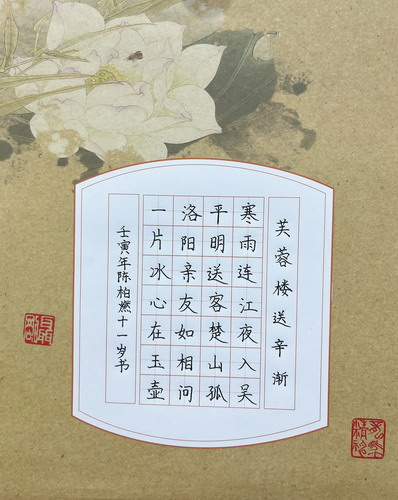 芙蓉楼送辛渐
寒雨连江夜入吴
平明送客楚山孤
洛阳亲友如相问
一片冰心在玉壶
壬寅年陈柏燃十一岁书